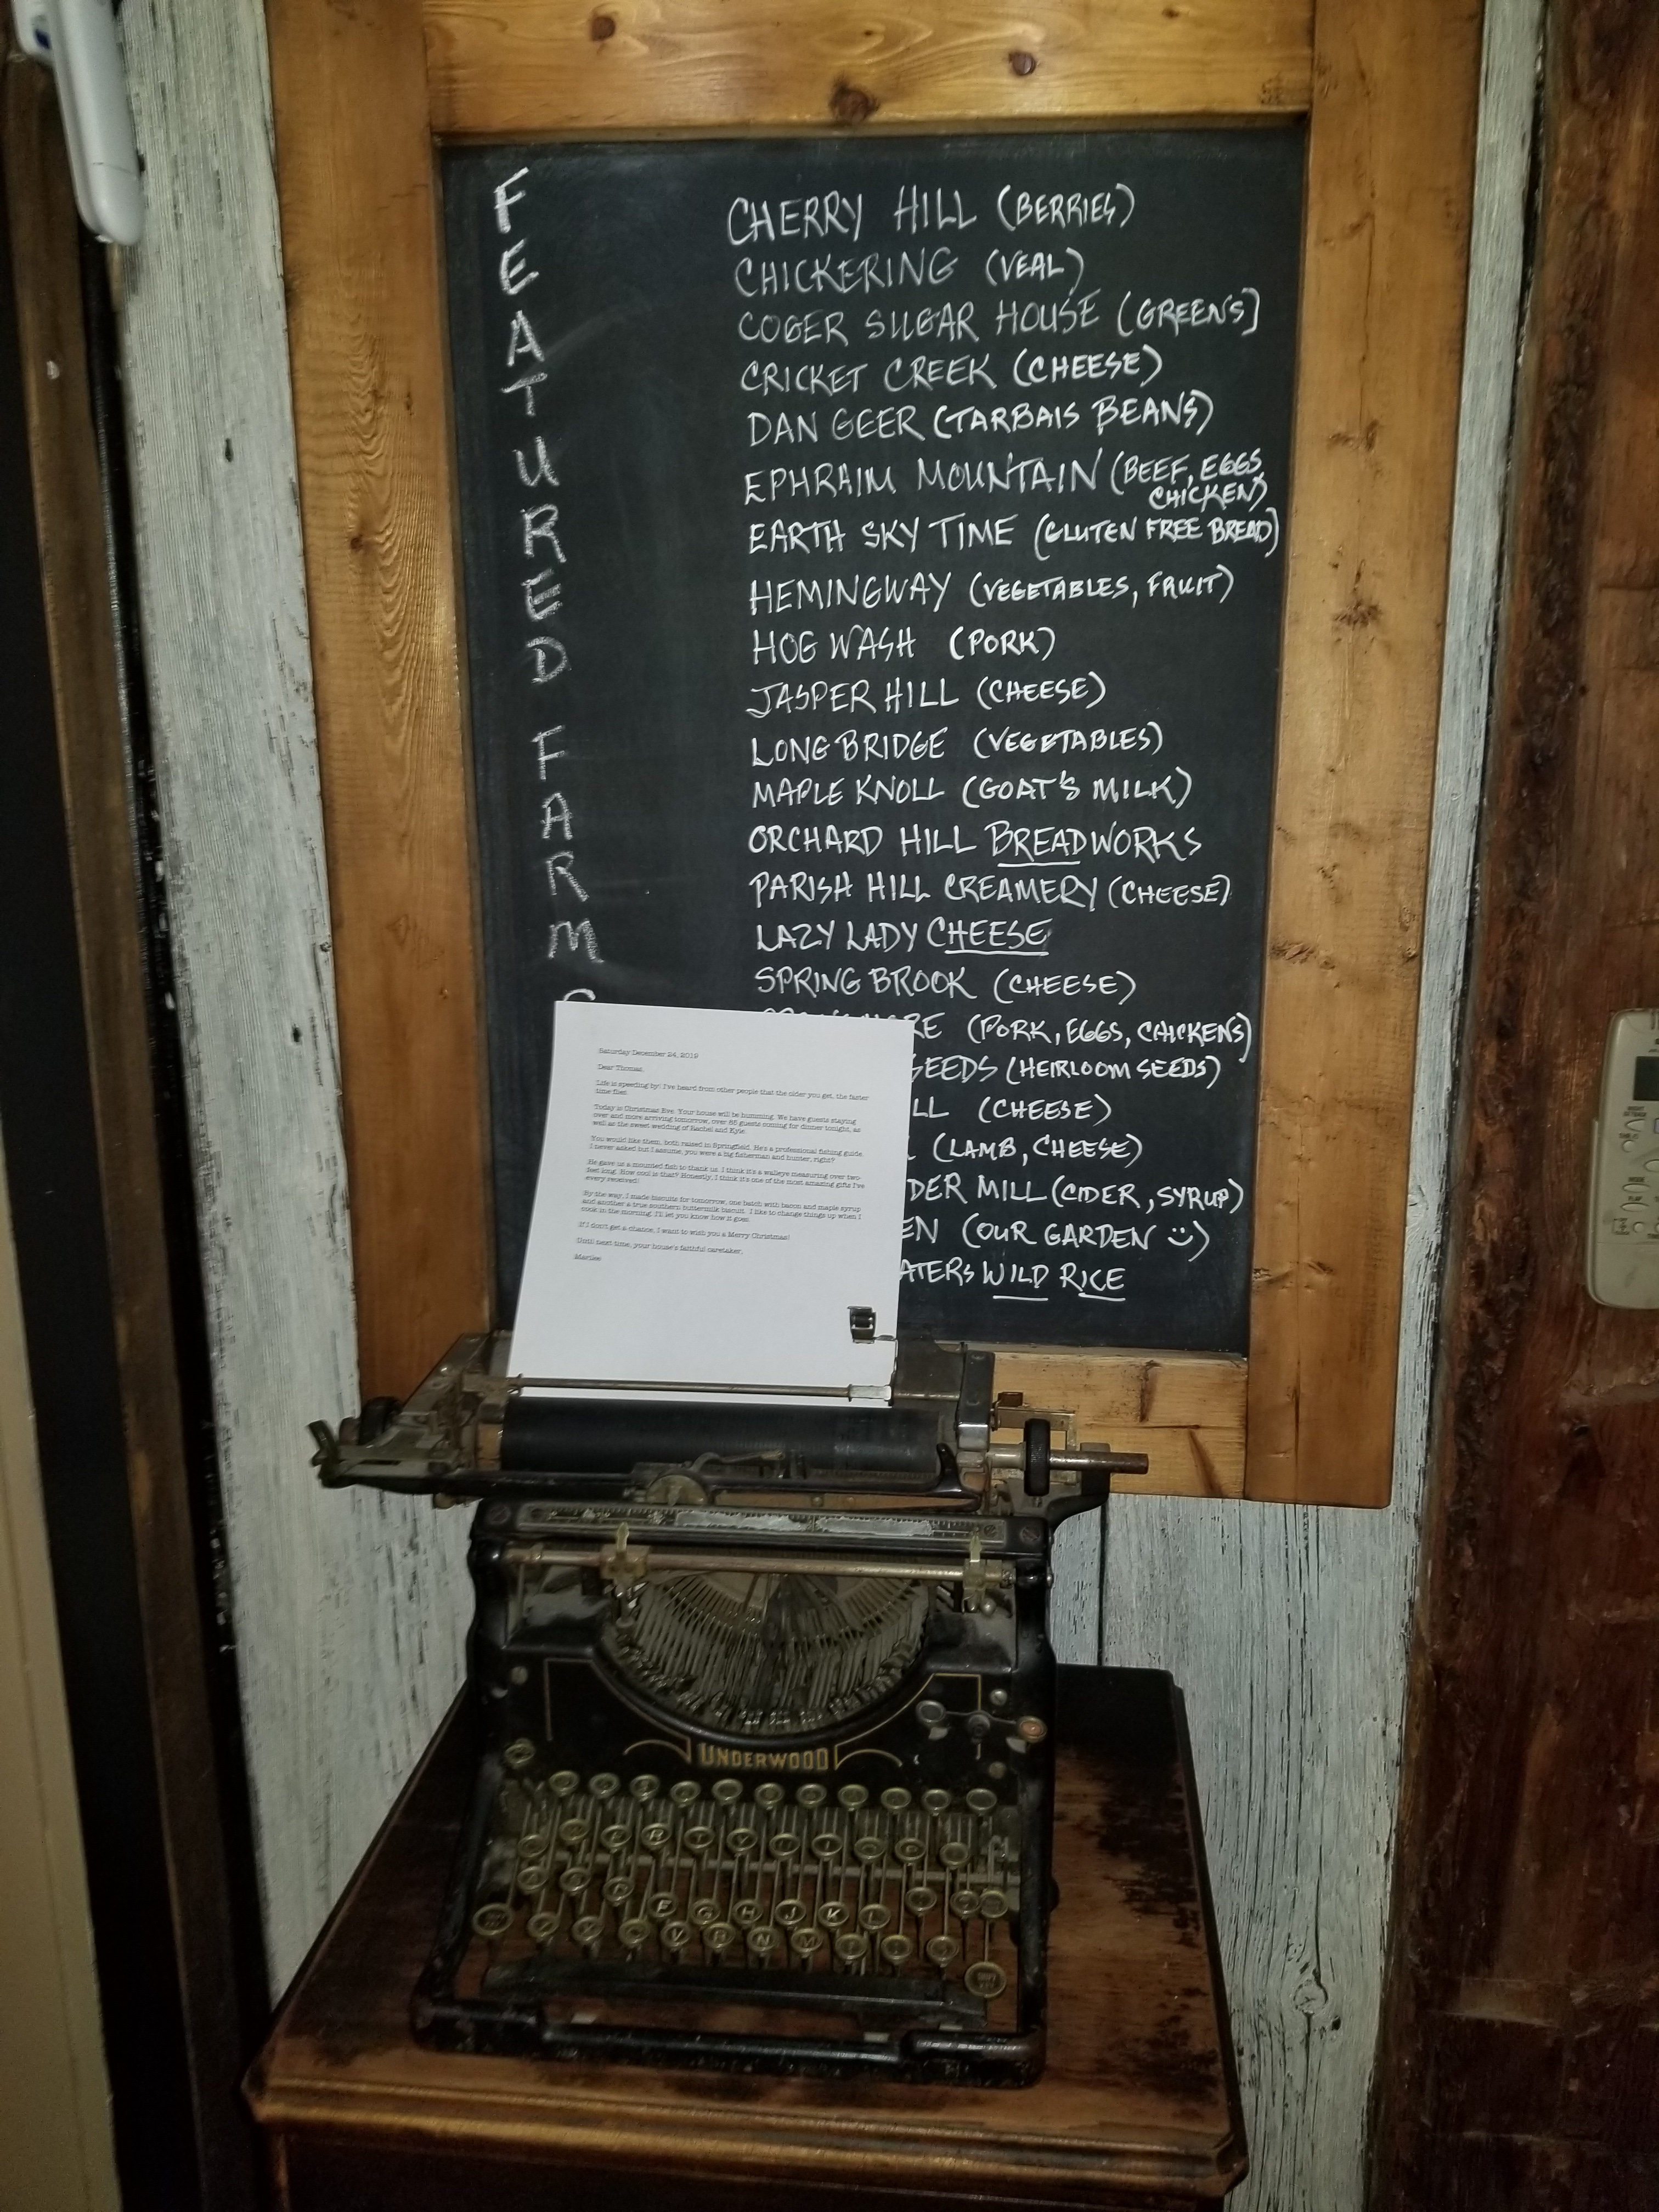 FEATURED FARM
CHERRY HILL (BERRIES)
CHICKERING (VEAL)
COGER SUGAR HOUSE (GREENS]
CRICKET CREEK (CHEESE)
DAN GEER (TARBAIS BEANS)
EPHRAIM MOUNTAIN (BEEF, EGGS,
CHICKEN)
EARTH SKY TIME (GLUTEN FREE BREAD]
HEMINGWAY (VEGETABLES, FRUIT)
HOG WASH (PORK)
JASPER HILL (CHEESE)
LONG BRIDGE (VEGETABLES)
MAPLE KNOLL (GOAT'S MILK)
ORCHARD HILL BREADWORKS
PARISH HILL CREAMERY (CHEESE)
LAZY LADY CHEESE
SPRING BROOK (CHEESE)
RE (PORK, EGGS, CHICKENS)
SEEDS (HEIRLOOM SEEDS)
LL (CHEESE)
(LAMB, CHEESE)
DER MILL (CIDER, SYRUP)
EN (OUR GARDEN)
ATERS WILD RICE
Saturday December 24, 2019
Dear Thomas,
Life is speeding by! I've heard from other people that the older you get, the faster
time flies.
Today is Christmas Eve. Your house will be humming. We have guests staying
over and more arriving tomorrow, over 85 guests coming for dinner tonight, as
well as the sweet wedding of Rachel and Kyle.
You would like them, both raised in Springfield. He's a professional fishing guide.
I never asked but I assume, you were a big fisherman and hunter, right?
He gave us a mounted fish to thank us. I think it's a walleye measuring over two-
feet long. How cool is that? Honestly, I think it's one of the most amazing gifts I've
every received!
By the way, I made biscuits for tomorrow, one batch with bacon and maple syrup
and another a true southern buttermilk biscuit. I like to change things up when I
cook in the morning. I'll let you know how it goes.
If I don't get a chance, I want to wish you a Merry Christmas!
Until next time, your house's faithful caretaker,
UNDERWOOD
R T Y
F G H J K L
V B N M